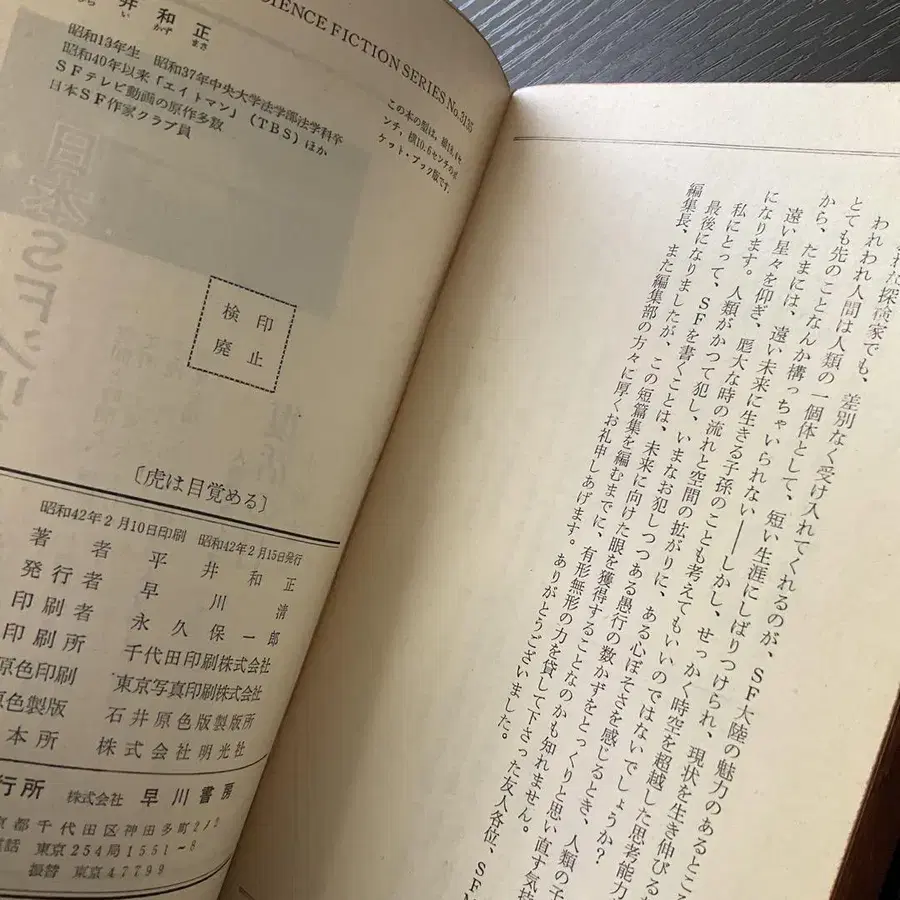 SCIENCE FICTION SERIES No.3135
井和正
い かず まさ
昭和13年生 昭和37年中央大学法学部法学科卒
昭和40年以来「エイトマン」(TBS)ほか
SFテレビ動画の原作多数
日本SF作家クラブ員
この本の型は、縦18.4セ
ンチ、横10.6センチのポ
ケット・ブック版です.
検印
廃止
〔虎は目覚める〕
昭和42年2月10日印刷 昭和42年2月15日発行
著者 平井和正
発行者 早川清
印刷者 永久保一郎
印刷所 千代田印刷株式会社
原色印刷 東京写真印刷株式会社
原色製版 石井原色版製版所
本所 株式会社明光社
行所 株式会社 早川書房
京都千代田区神田多町2ノ2
電話 東京254局1551~8
振替 東京47799
れた探検家でも、差別なく受け入れてくれるのが、SF大陸の魅力のあるところ
われわれ人間は人類の一個体として、短い生涯にしばりつけられ、現状を生き伸びる
とても先のことなんか構っちゃいられない――しかし、せっかく時空を超越した思考能力
から、たまには、遠い未来に生きる子孫のことも考えてもいいのではないでしょうか?
遠い星々を仰ぎ、厖大な時の流れと空間の拡がりに、ある心ぼそさを感じるとき、人類の
になります。人類がかつて犯し、いまなお犯しつつある愚行の数かずをとっくりと思い直す気持
私にとって、SFを書くことは、未来に向けた眼を獲得することなのかも知れません。
最後になりましたが、この短篇集を編むまでに、有形無形の力を貸して下さった友人各位、SF
編集長、また編集部の方々に厚くお礼申しあげます。ありがとうございました。